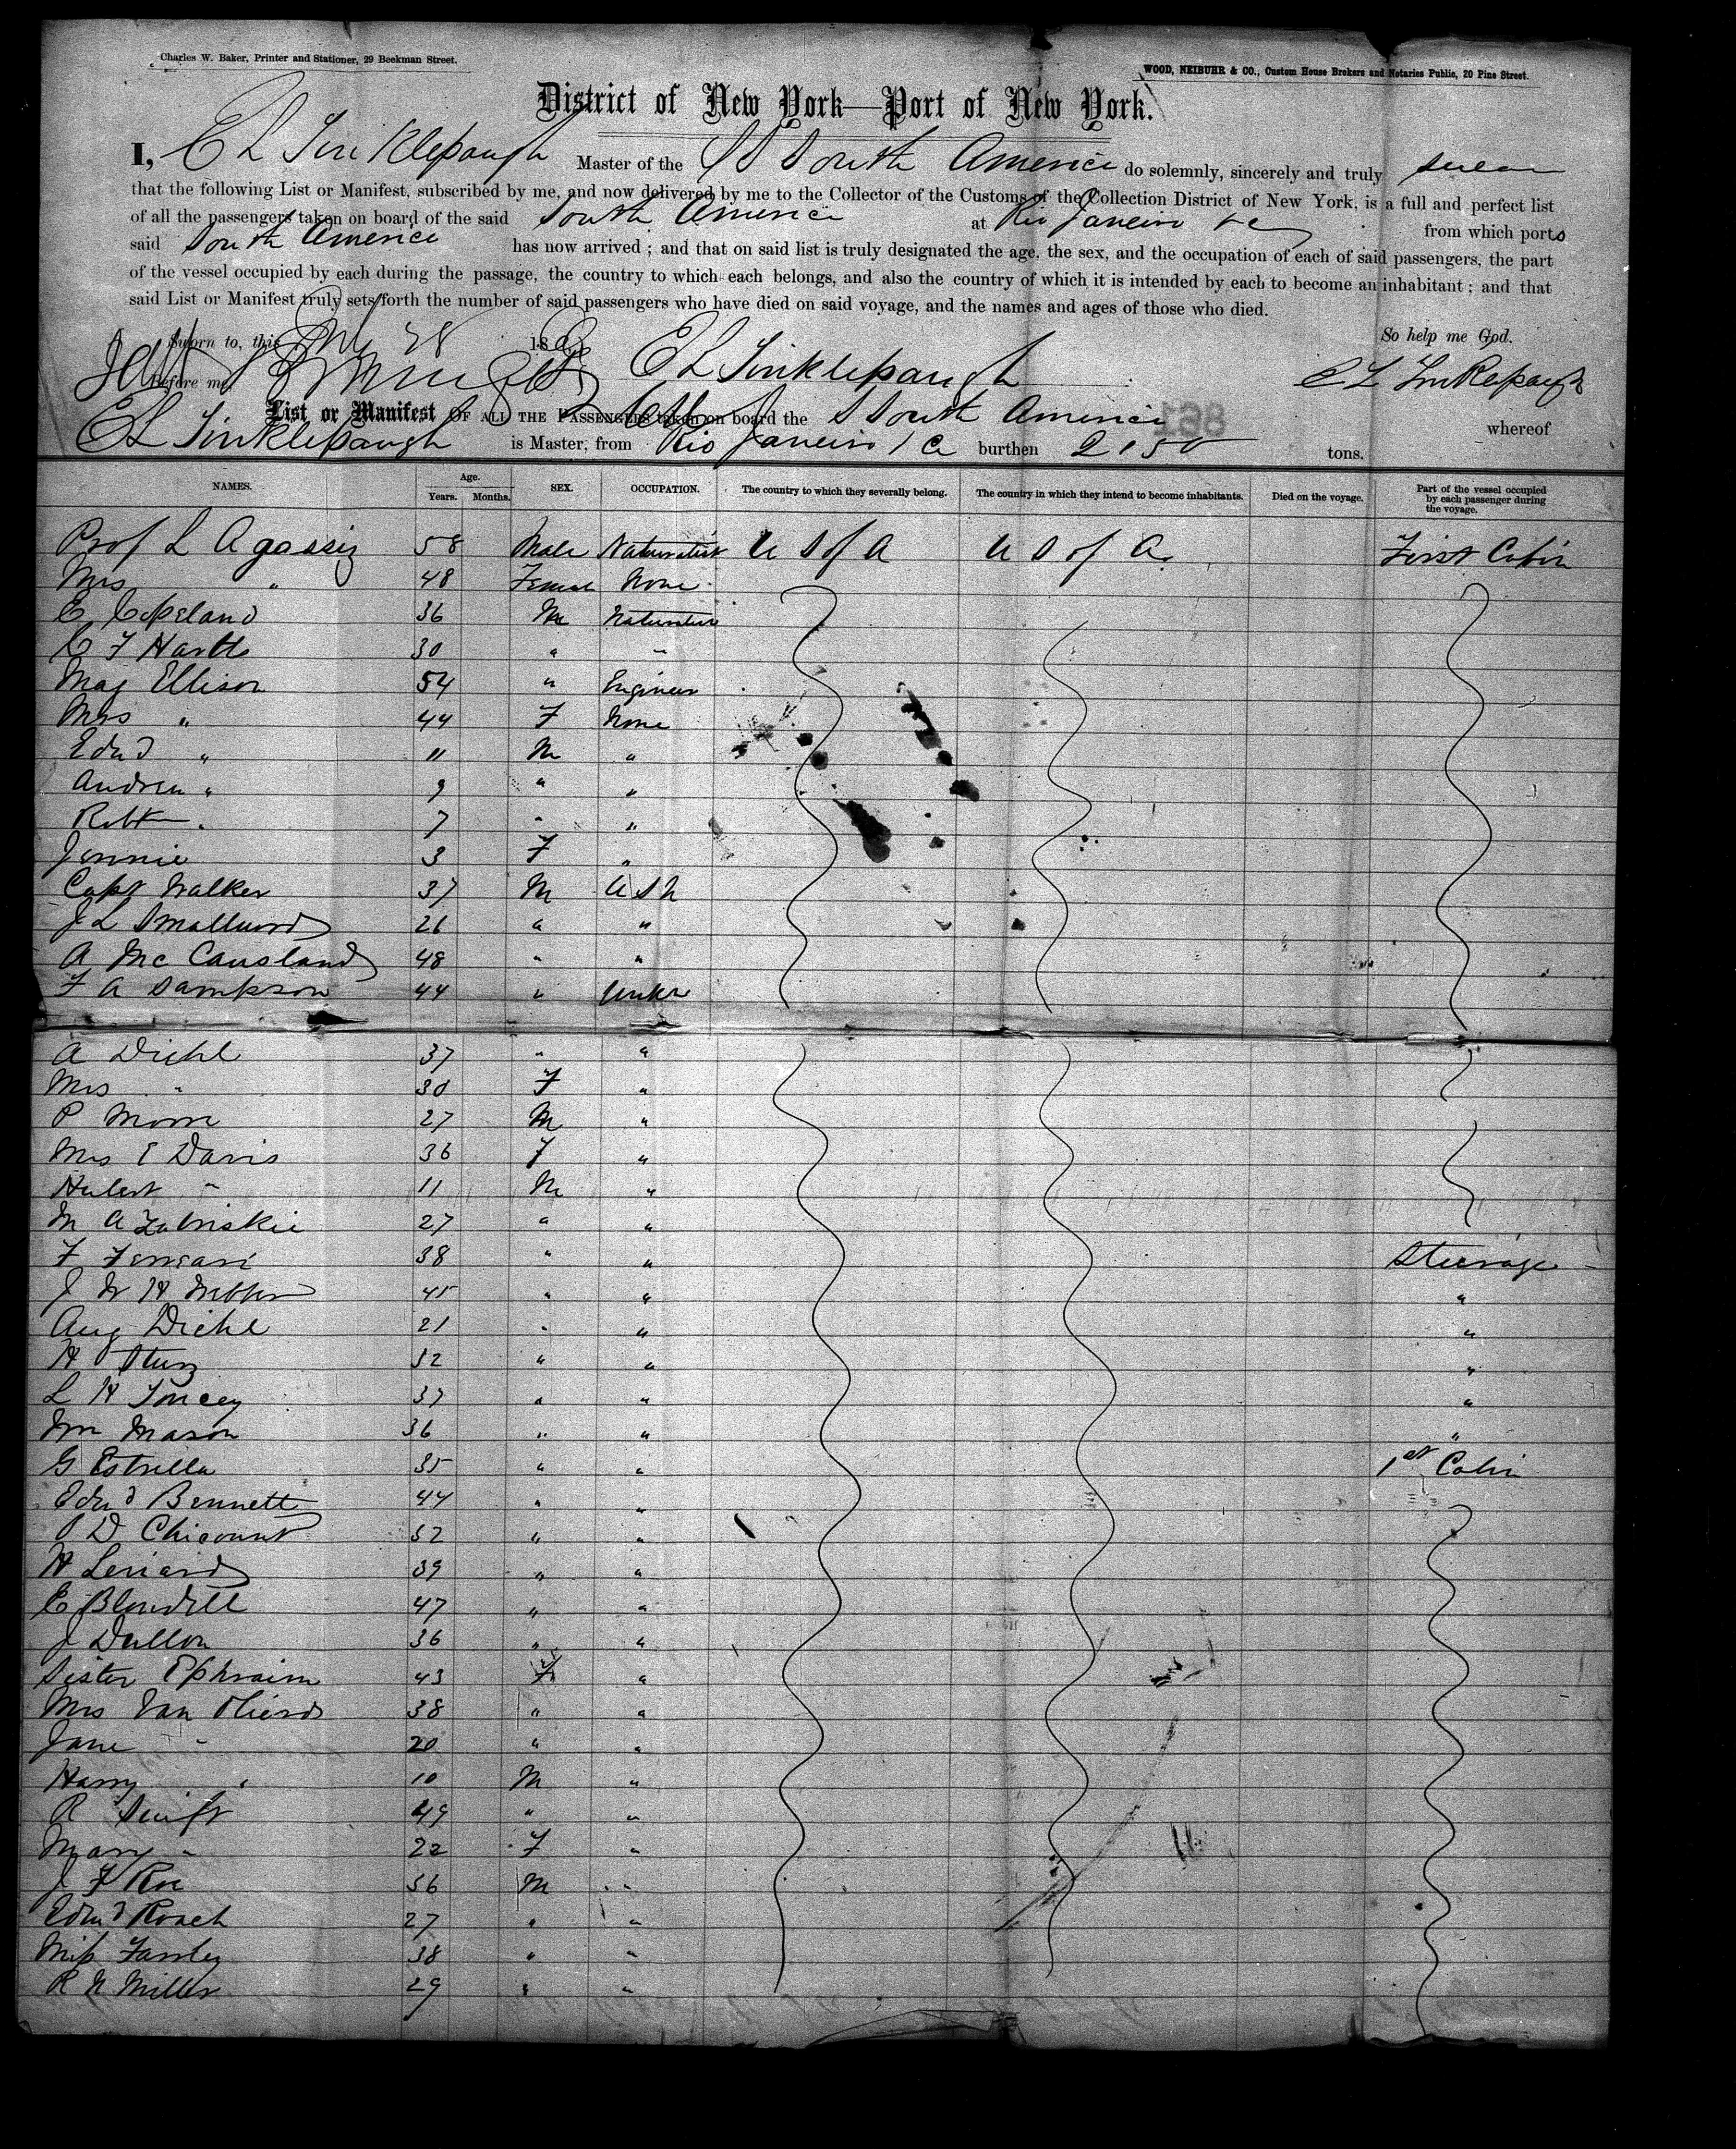 Charles W. Baker, Printer and Stationer, 29 Beekman Street.
WOOD, NEIBUHR & CO., Custom House Brokers and Notaries Public, 20 Pine Street.
District of New York—Port of New York.
I, E L Tinklepaugh Master of the SS South America do solemnly, sincerely and truly swear
that the following List or Manifest, subscribed by me, and now delivered by me to the Collector of the Customs of the Collection District of New York, is a full and perfect list
of all the passengers taken on board of the said South America at Rio Janeiro &c from which ports
said South America has now arrived ; and that on said list is truly designated the age, the sex, and the occupation of each of said passengers, the part
of the vessel occupied by each during the passage, the country to which each belongs, and also the country of which it is intended by each to become an inhabitant ; and that
said List or Manifest truly sets forth the number of said passengers who have died on said voyage, and the names and ages of those who died.
So help me God.
Sworn to, this 28 186
Before me, E L Tinklepaugh E L Tinklepaugh
List or Manifest OF ALL THE PASSENGERS taken on board the S South America whereof
E L Tinklepaugh is Master, from Rio Janeiro &c burthen 2150 tons.
NAMES. Age. Years. Months. SEX. OCCUPATION. The country to which they severally belong. The country in which they intend to become inhabitants. Died on the voyage. Part of the vessel occupied by each passenger during the voyage.
Prof L Agassiz 58 Male Naturalist U S of A U S of A. First Cabin
Mrs " 48 Female None
E Copeland 36 M Naturalist
C F Hartt 30 " "
Maj Ellison 54 " Engineer
Mrs " 44 F None
Edwd " 11 M "
Andrew " 9 " "
Robt " 7 " "
Jennie 3 F "
Capt Walker 37 M U S N
J L Smallwood 26 " "
A Mc Causland 48 " "
F A Sampson 44 "
A Diehl 37 " "
Mrs " 30 F "
P Morse 27 M "
Mrs E Davis 36 F "
Hubert " 11 M "
M A Zabriskie 27 " "
F Ferrari 38 " " Steerage
J W H 45 " " "
Aug Diehl 21 " " "
H 32 " " "
L H 37 " " "
Wm Mason 36 " " "
G Estrella 35 " " 1st Cabin
Edwd Bennett 44 " "
D 52 " "
H Leniard 39 " "
E Blundell 47 " "
J Dullon 36 " "
Sister Ephraim 43 F "
Mrs Van 38 " "
Jane " 20 " "
Harry " 10 M "
R Swift 49 " "
Mary " 22 F "
J F Roe 56 M "
Edwd Roach 27 " "
Miss 38 " "
R N Miller 29 " "